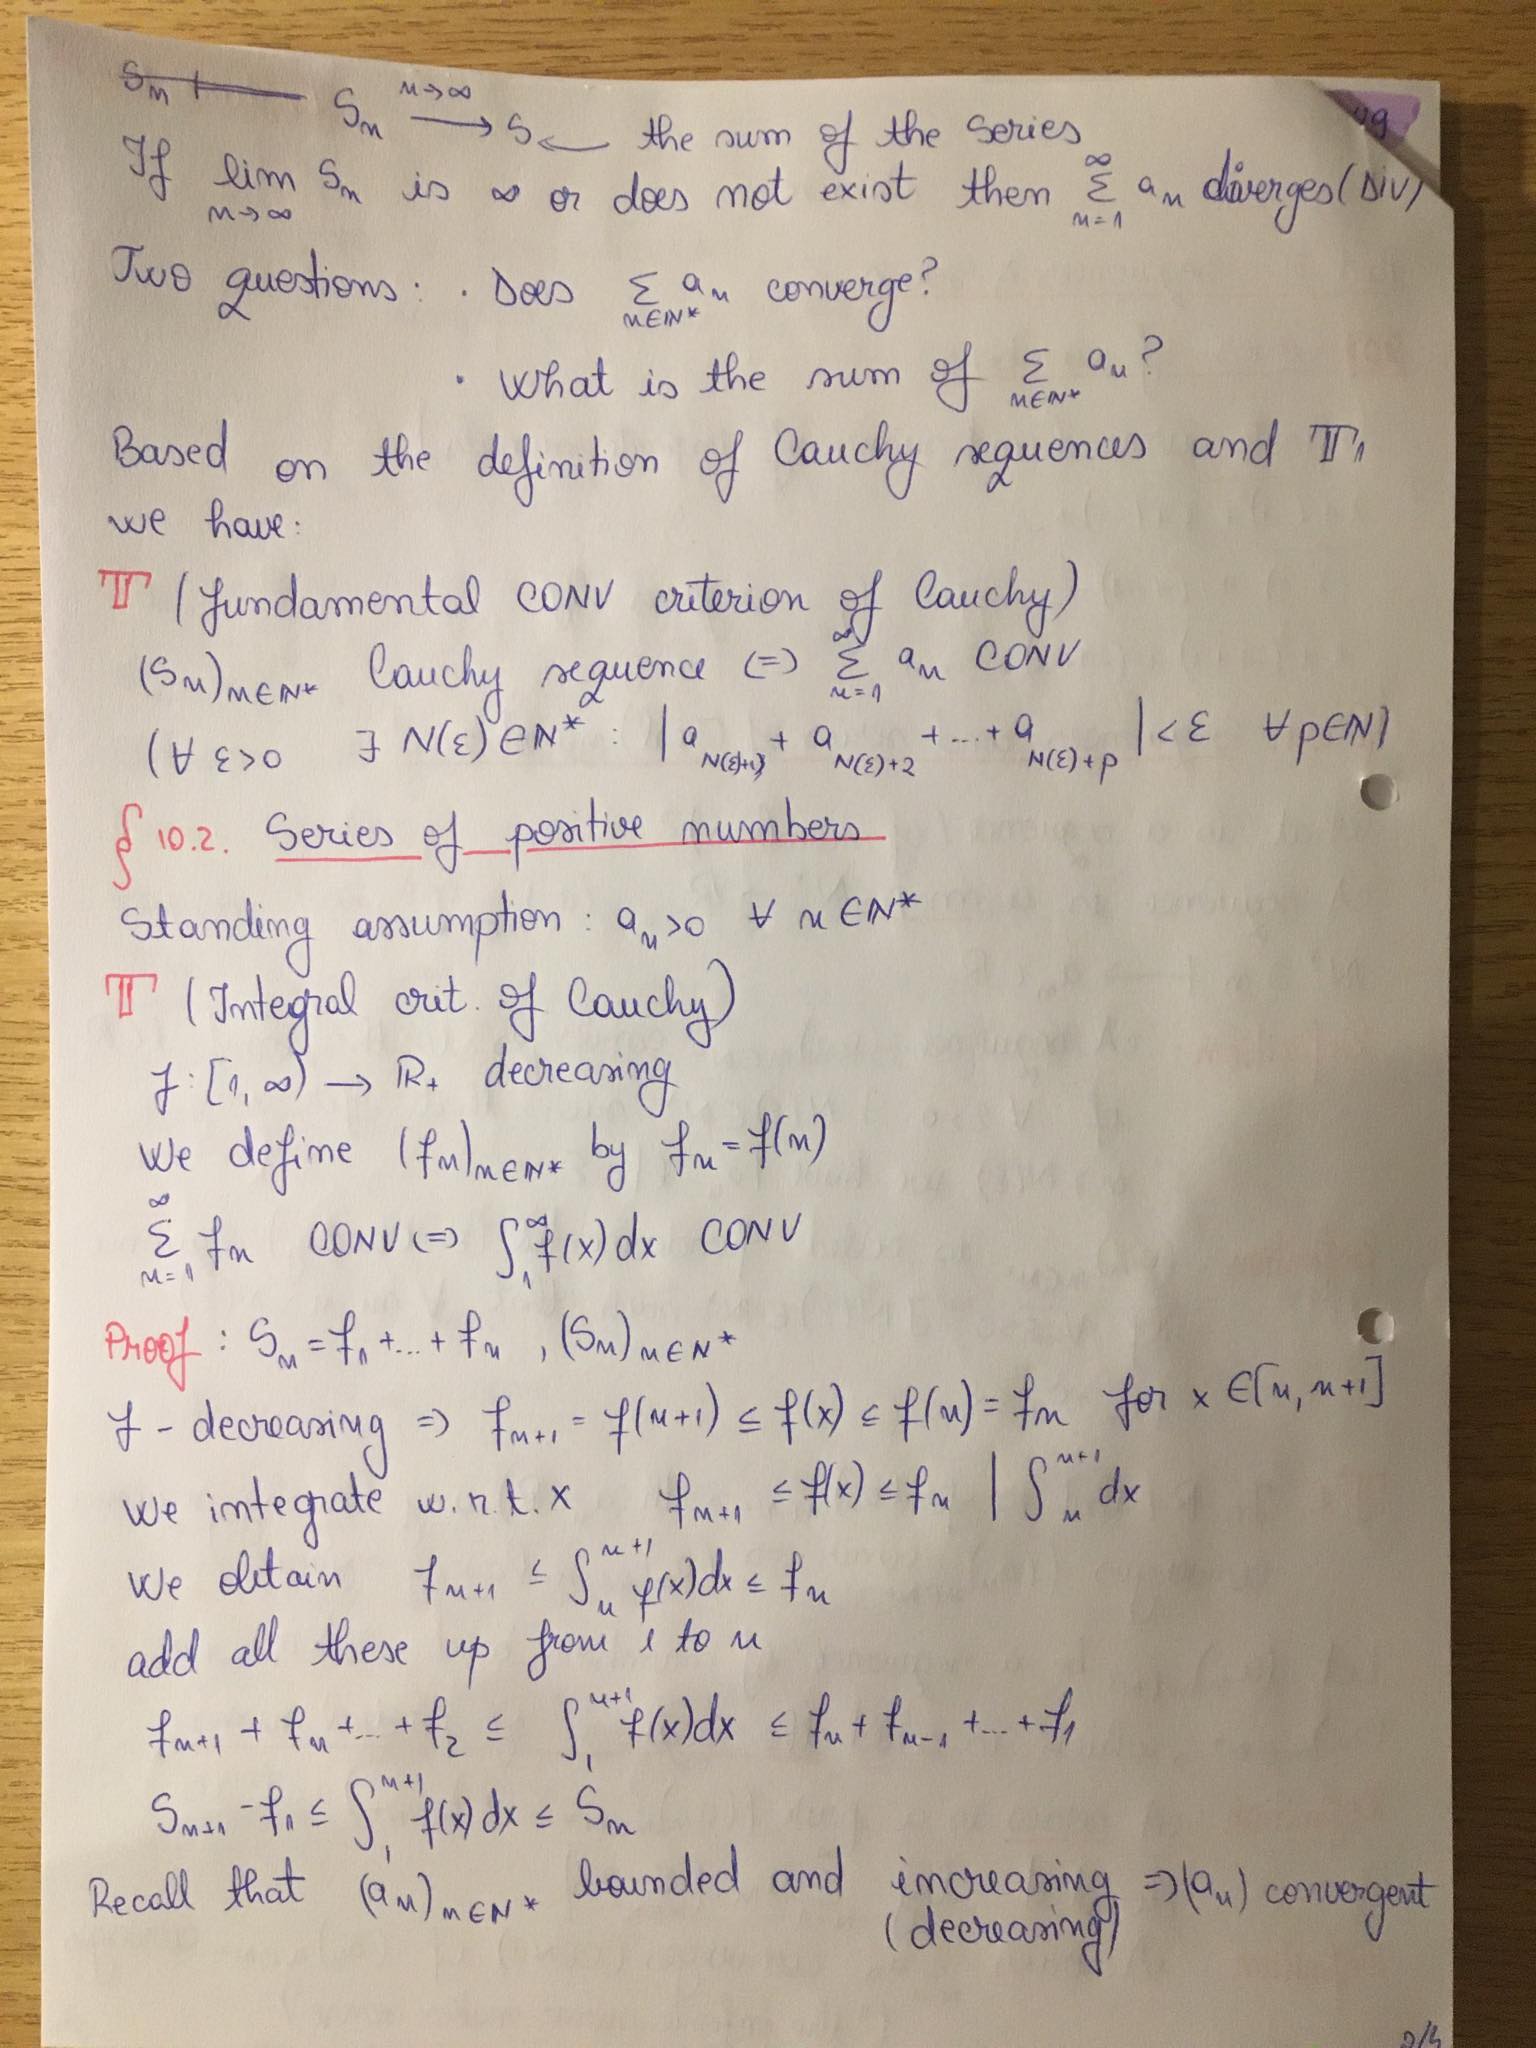 S_n +
S_n —n→∞→ S ← the sum of the series
49
If lim_{n→∞} S_n is ∞ or does not exist then ∑_{n=1}^∞ a_n diverges (DIV)
Two questions: · Does ∑_{n∈ℕ*} a_n converge?
· What is the sum of ∑_{n∈ℕ*} a_n?
Based on the definition of Cauchy sequences and T_1
we have:
T (fundamental CONV criterion of Cauchy)
(S_n)_{n∈ℕ*} Cauchy sequence ⇔ ∑_{n=1}^∞ a_n CONV
(∀ ε>0 ∃ N(ε)∈ℕ* : |a_{N(ε)+1} + a_{N(ε)+2} + ... + a_{N(ε)+p}| < ε ∀p∈ℕ)
§ 10.2. Series of positive numbers
Standing assumption: a_n>0 ∀ n∈ℕ*
T (Integral crit. of Cauchy)
f:[1,∞) → ℝ₊ decreasing
We define (f_n)_{n∈ℕ*} by f_n = f(n)
∑_{n=1}^∞ f_n CONV ⇔ ∫_1^∞ f(x)dx CONV
Proof: S_n = f_1 + ... + f_n, (S_n)_{n∈ℕ*}
f - decreasing ⇒ f_{n+1} = f(n+1) ≤ f(x) ≤ f(n) = f_n for x ∈[n, n+1]
We integrate w.r.t. x f_{n+1} ≤ f(x) ≤ f_n | ∫_n^{n+1} dx
We obtain f_{n+1} ≤ ∫_n^{n+1} f(x)dx ≤ f_n
add all these up from 1 to n
f_{n+1} + f_n + ... + f_2 ≤ ∫_1^{n+1} f(x)dx ≤ f_n + f_{n-1} + ... + f_1
S_{n+1} - f_1 ≤ ∫_1^{n+1} f(x)dx ≤ S_n
Recall that (a_n)_{n∈ℕ*} bounded and increasing ⇒ (a_n) convergent
(decreasing)